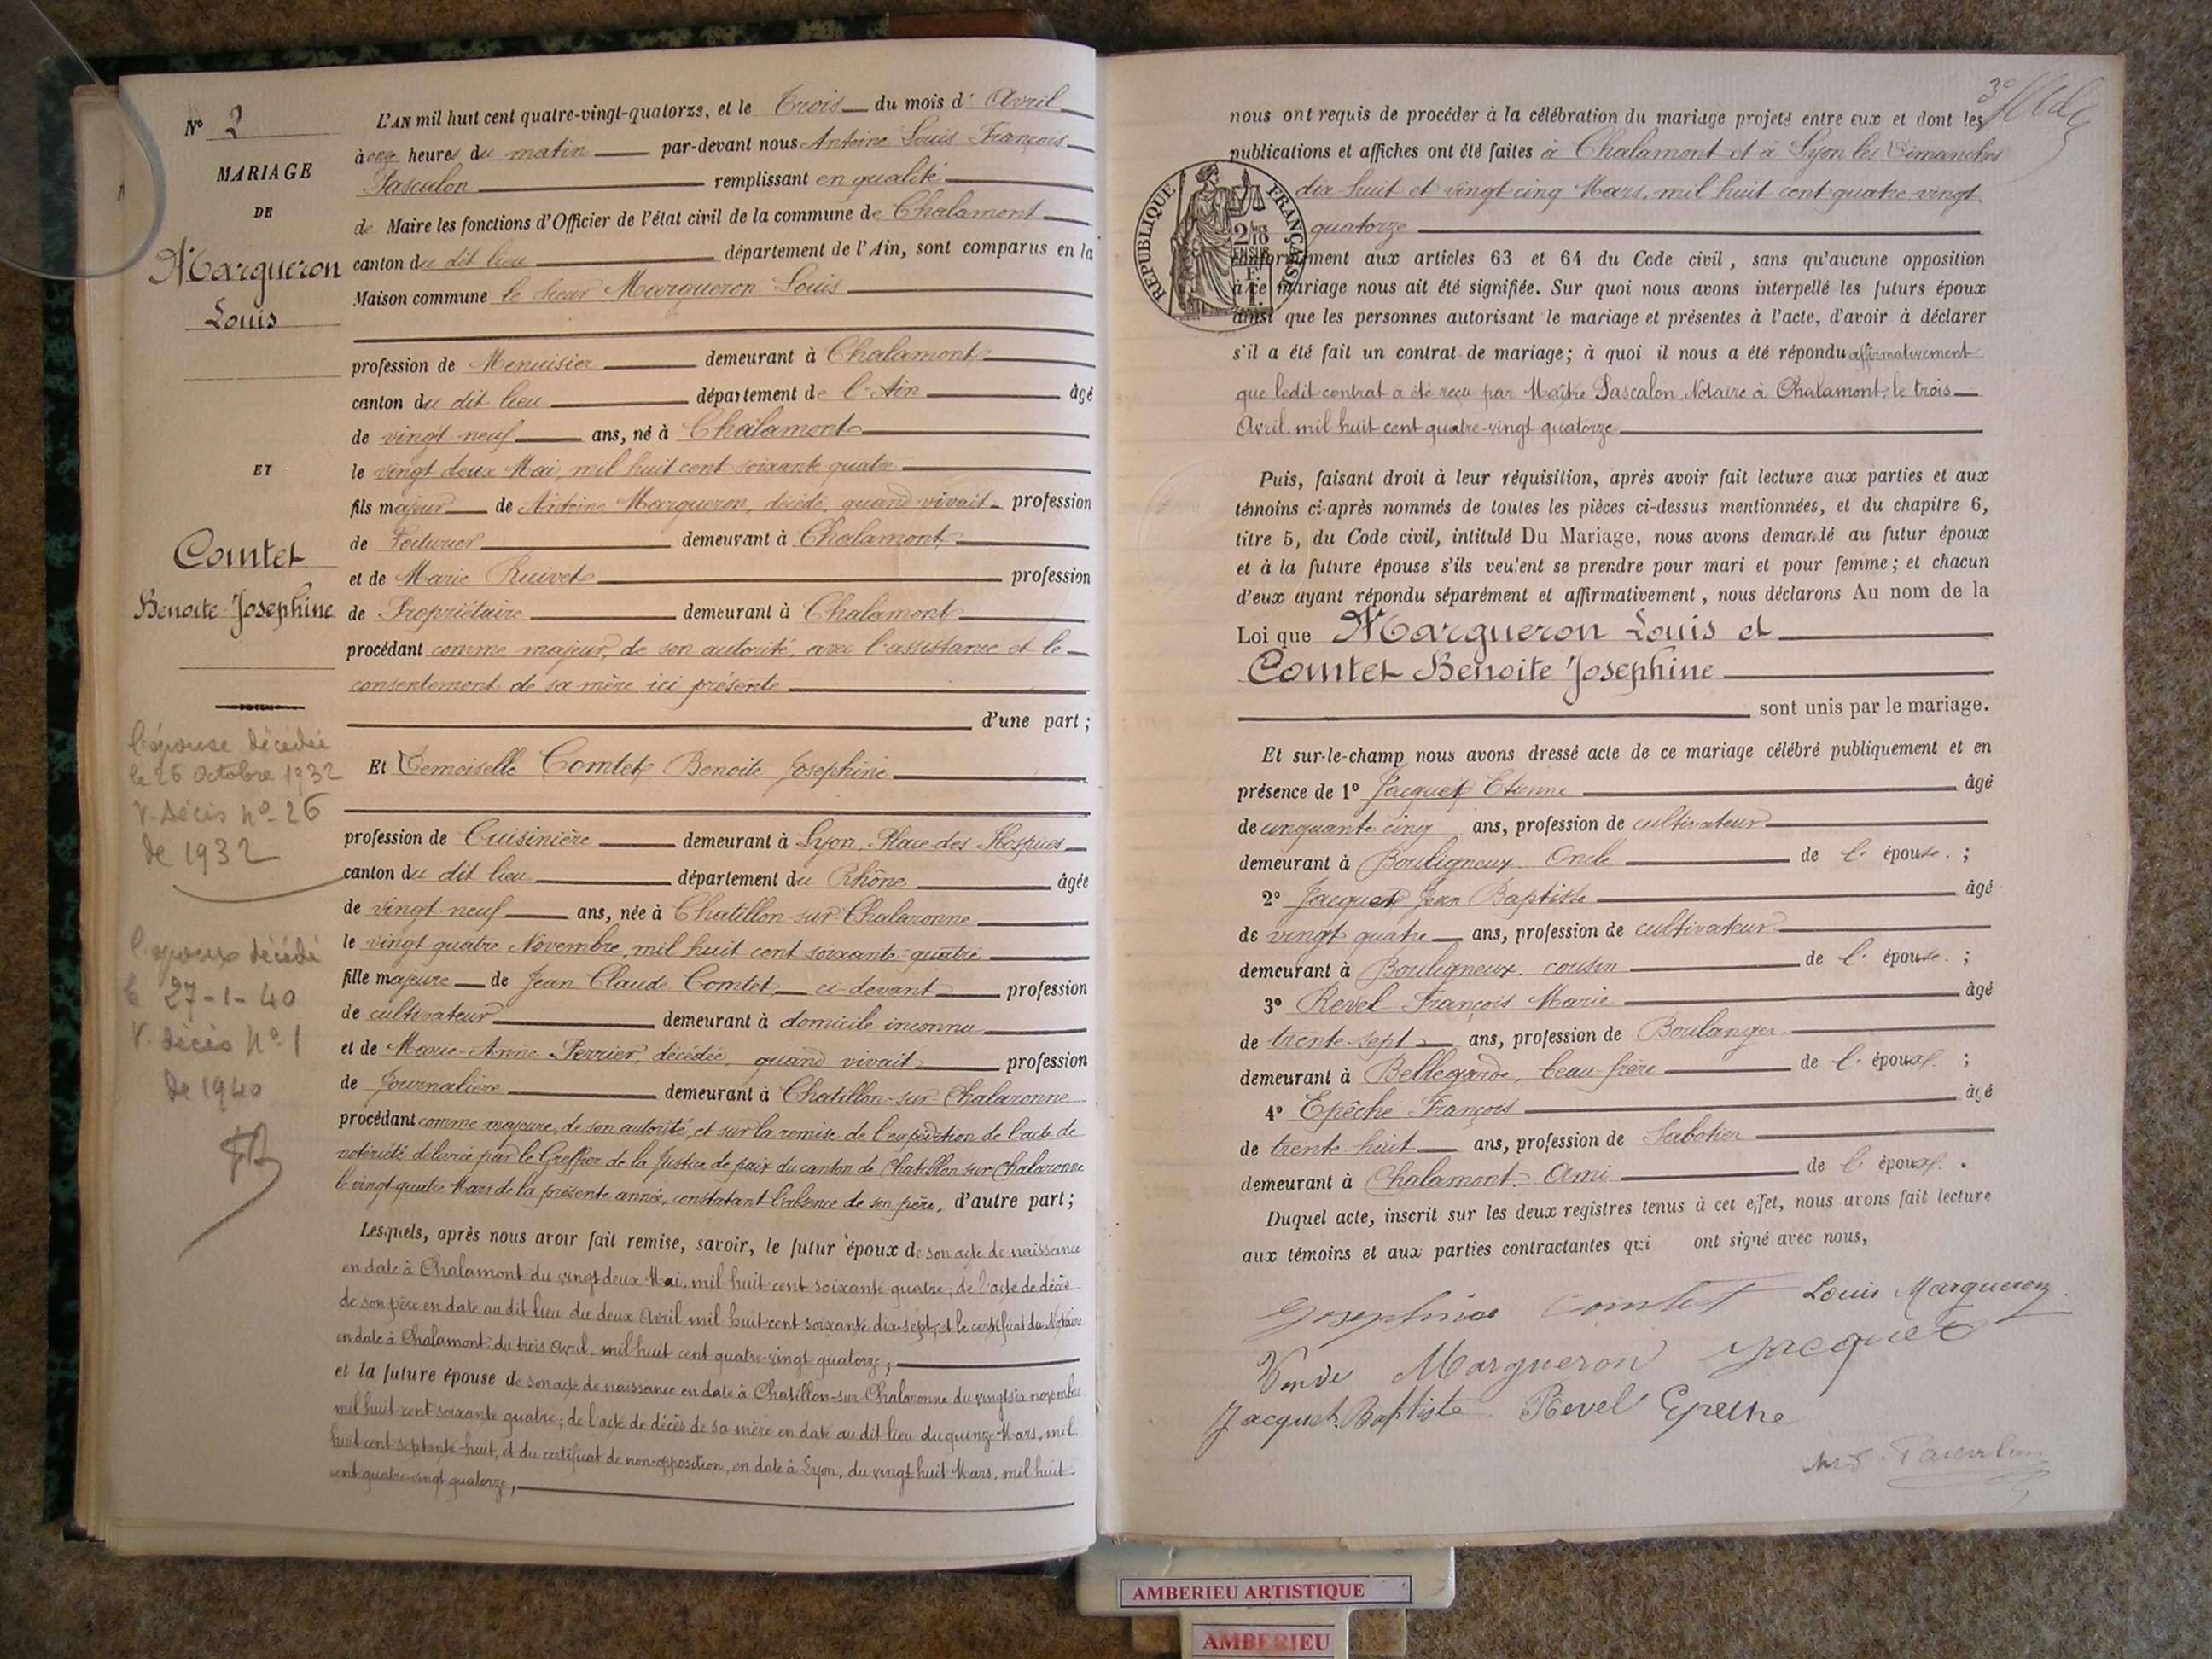 N° 2
MARIAGE
DE
Margueron
Louis
ET
Comtet
Benoite Josephine
l'épouse décédée
le 26 Octobre 1932
V. Décès n° 26
de 1932
l'époux décédé
le 27-1-40
V. décès n° 1
de 1940
L'AN mil huit cent quatre-vingt-quatorze, et le Trois du mois d' Avril
à onze heures du matin par-devant nous Antoine Louis François
Pascalon remplissant en qualité
de Maire les fonctions d'Officier de l'état civil de la commune de Chalamont
canton du dit lieu département de l'Ain, sont comparus en la
Maison commune le sieur Margueron Louis
profession de Menuisier demeurant à Chalamont
canton du dit lieu département de l'Ain âgé
de vingt neuf ans, né à Chalamont
le vingt deux Mai, mil huit cent soixante quatre
fils majeur de Antoine Margueron, décédé, quand vivait profession
de Voiturier demeurant à Chalamont
et de Marie Ruivet profession
de Propriétaire demeurant à Chalamont
procédant comme majeur, de son autorité, avec l'assistance et le
consentement de sa mère ici présente
d'une part ;
Et Demoiselle Comtet Benoite Josephine
profession de Cuisinière demeurant à Lyon, Place des Hospices
canton du dit lieu département du Rhône âgée
de vingt neuf ans, née à Chatillon sur Chalaronne
le vingt quatre Novembre, mil huit cent soixante-quatre
fille majeure de Jean Claude Comtet ci-devant profession
de cultivateur demeurant à domicile inconnu
et de Marie-Anne Perrier, décédée, quand vivait profession
de Journalière demeurant à Chatillon-sur-Chalaronne
procédant comme majeure, de son autorité, et sur la remise de l'expédition de l'acte de
notoriété délivrée par le Greffier de la Justice de paix du canton de Chatillon sur Chalaronne
le vingt quatre Mars de la présente année, constatant l'absence de son père, d'autre part ;
Lesquels, après nous avoir fait remise, savoir, le futur époux de son acte de naissance
en date à Chalamont du vingt deux Mai, mil huit cent soixante quatre ; de l'acte de décès
de son père en date au dit lieu du deux Avril mil huit cent soixante dix-sept, et le certificat du Notaire
en date à Chalamont du trois Avril, mil huit cent quatre-vingt quatorze ;
et la future épouse de son acte de naissance en date à Chatillon-sur-Chalaronne du vingt six novembre
mil huit cent soixante quatre ; de l'acte de décès de sa mère en date au dit lieu du quinze Mars, mil
huit cent septante-huit, et du certificat de non-opposition, en date à Lyon, du vingt huit Mars, mil huit
cent quatre-vingt quatorze,
nous ont requis de procéder à la célébration du mariage projeté entre eux et dont les
publications et affiches ont été faites à Chalamont et à Lyon les Dimanches
dix-huit et vingt cinq Mars, mil huit cent quatre-vingt
quatorze
RÉPUBLIQUE FRANÇAISE
conformément aux articles 63 et 64 du Code civil, sans qu'aucune opposition
à ce mariage nous ait été signifiée. Sur quoi nous avons interpellé les futurs époux
ainsi que les personnes autorisant le mariage et présentes à l'acte, d'avoir à déclarer
s'il a été fait un contrat de mariage ; à quoi il nous a été répondu affirmativement
que ledit contrat a été reçu par Maître Pascalon, Notaire à Chalamont, le trois
Avril, mil huit cent quatre-vingt quatorze
Puis, faisant droit à leur réquisition, après avoir fait lecture aux parties et aux
témoins ci-après nommés de toutes les pièces ci-dessus mentionnées, et du chapitre 6,
titre 5, du Code civil, intitulé Du Mariage, nous avons demandé au futur époux
et à la future épouse s'ils veulent se prendre pour mari et pour femme ; et chacun
d'eux ayant répondu séparément et affirmativement, nous déclarons Au nom de la
Loi que Margueron Louis et
Comtet Benoite Josephine
sont unis par le mariage.
Et sur-le-champ nous avons dressé acte de ce mariage célébré publiquement et en
présence de 1° Jacquet Etienne âgé
de cinquante cinq ans, profession de cultivateur
demeurant à Bouligneux. Oncle de l' épouse. ;
2° Jacquet Jean Baptiste âgé
de vingt quatre ans, profession de cultivateur
demeurant à Bouligneux. cousin de l' épouse. ;
3° Revel François Marie âgé
de trente-sept ans, profession de Boulanger
demeurant à Bellegarde, beau-frère de l' époux ;
4° Epêche François âgé
de trente-huit ans, profession de Sabotier
demeurant à Chalamont. Ami de l' époux.
Duquel acte, inscrit sur les deux registres tenus à cet effet, nous avons fait lecture
aux témoins et aux parties contractantes qui ont signé avec nous,
Josephine Comtet Louis Margueron
Veuve Margueron Jacquet
Jacquet Baptiste Revel Epeche
Pascalon
AMBERIEU ARTISTIQUE
AMBERIEU